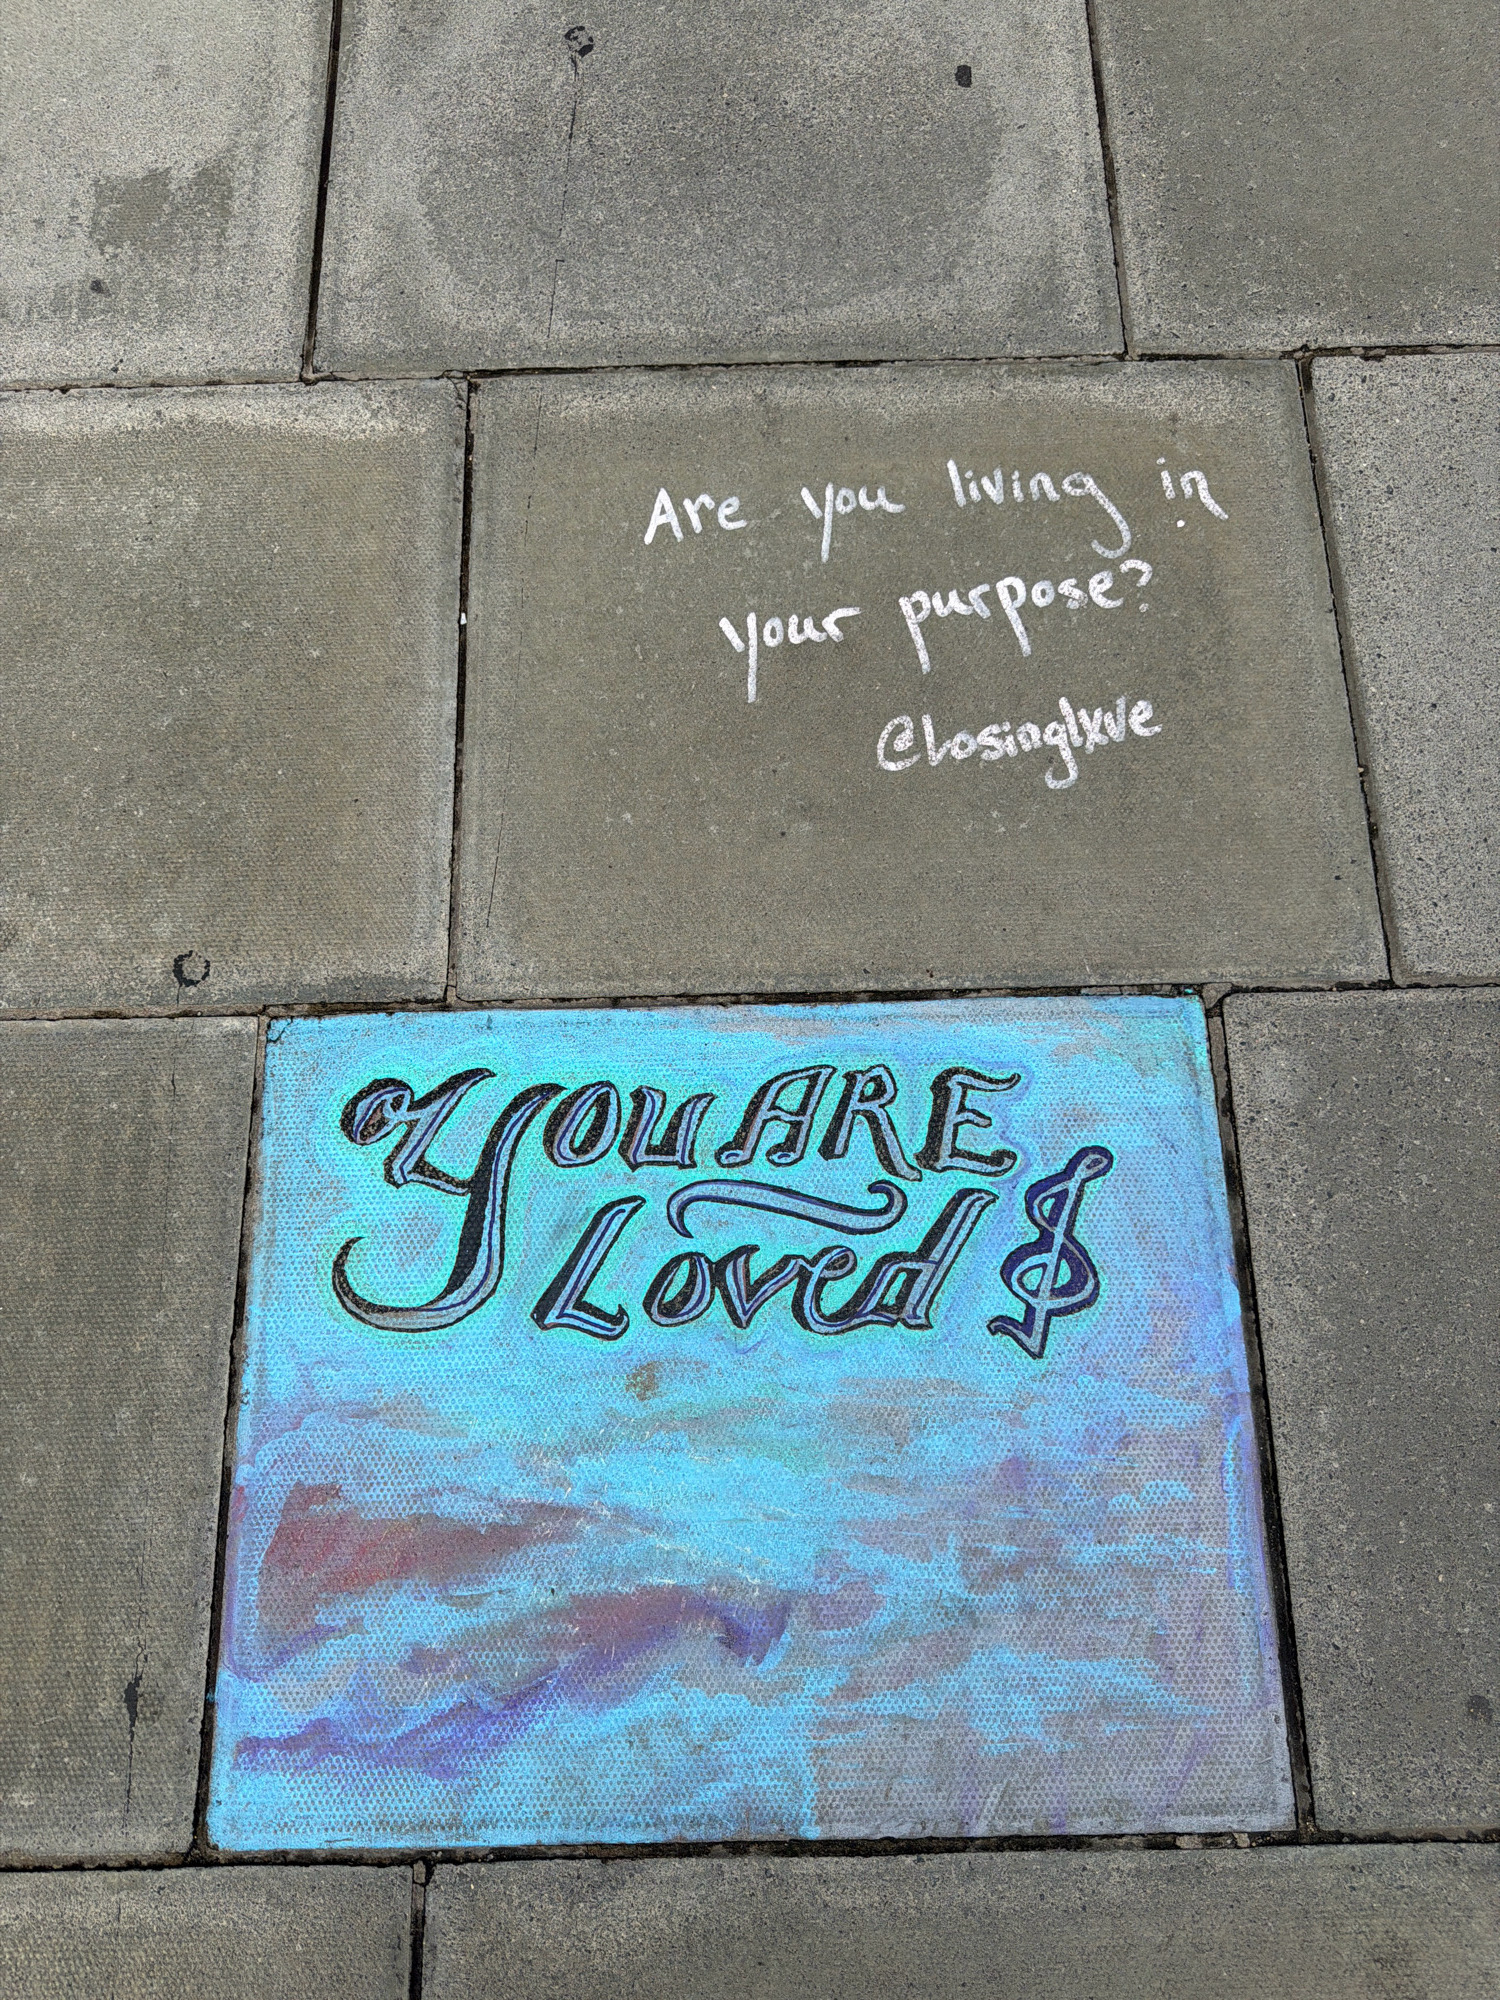 Are you living in
your purpose?
@Losinglxve
You ARE
Loved